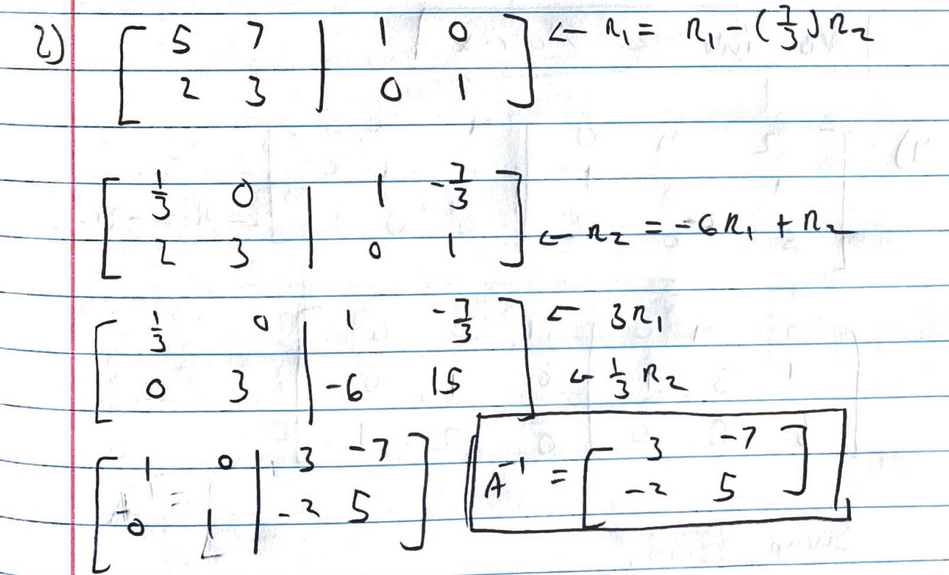 2) [ 5 7 | 1 0 ] ← R₁ = R₁ - (7/3) R₂
[ 2 3 | 0 1 ]
[ 1/3 0 | 1 -7/3 ]
[ 2 3 | 0 1 ] ← R₂ = -6R₁ + R₂
[ 1/3 0 | 1 -7/3 ] ← 3R₁
[ 0 3 | -6 15 ] ← 1/3 R₂
[ 1 0 | 3 -7 ]
[ 0 1 | -2 5 ]
A⁻¹ = [ 3 -7 ]
[ -2 5 ]